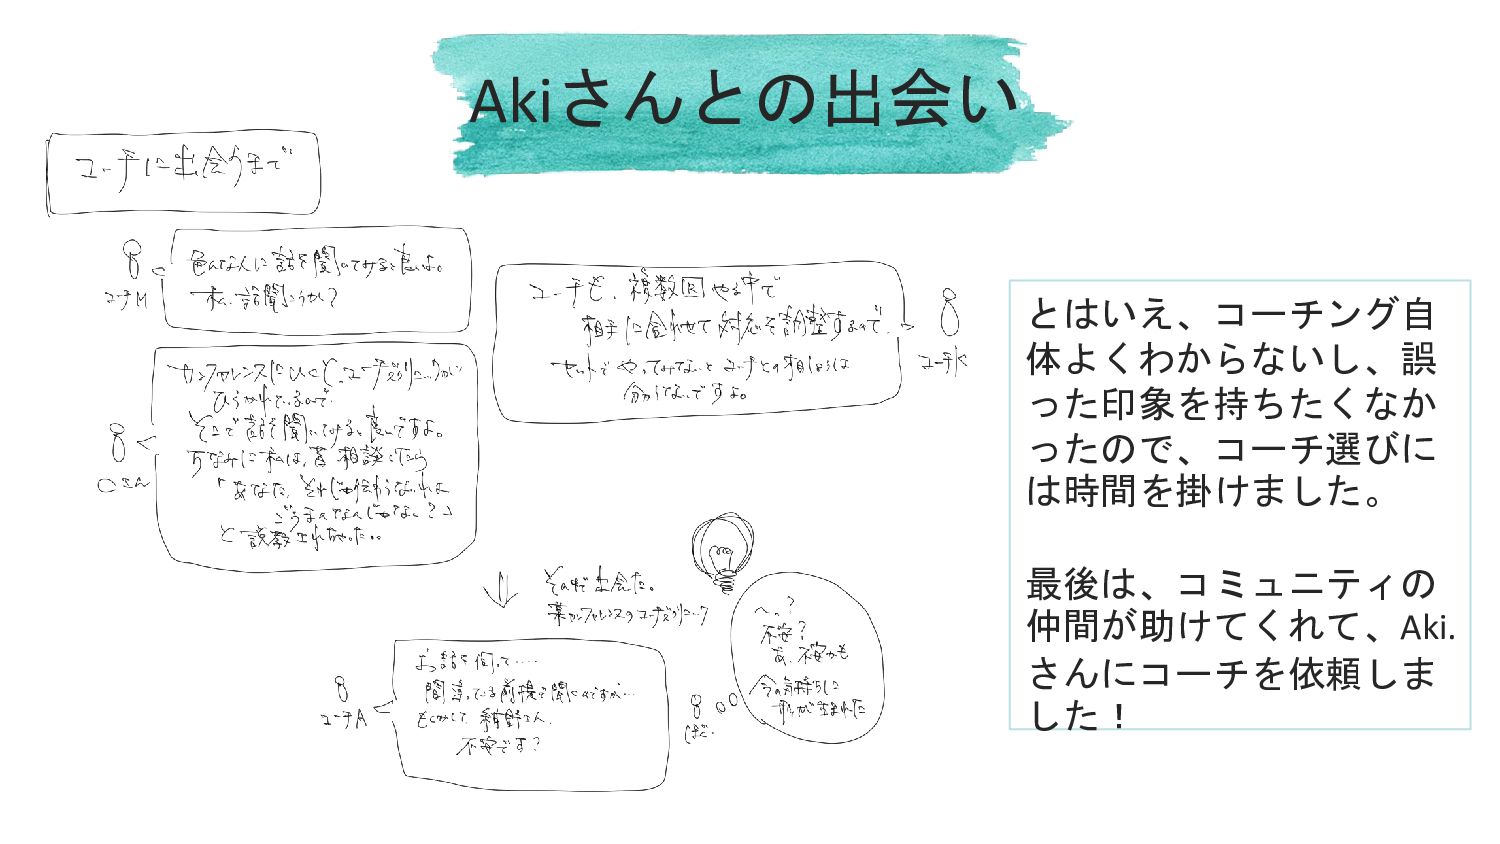 Akiさんとの出会い
コーチに出会うまで
色んな人に話を聞いてみると良いよ。
私、話聞こうか?
コーチM
コーチも、複数回やる中で
相手に合わせて対応を調整するので、
セットでやってみてないとコーチとの相しょうは
分からないですよ。
コーチK
カンファレンスにいくと、コーチズクリニックが
ひらかれているので
そこで話を聞いてみると良いですよ。
ちなみに私は、昔相談したら
「あなた、それじゃ伝わらないわよ
ごうまんなんじゃない?」
と説教されちゃった..
○さん
そんな出会った。
某カンファレンスのコーチズクリニック
お話を伺って‥‥
間違っている前提で聞くのですが…
もしかして、
不安です?
コーチA
へっ?
不安?
あ、不安かも
今の気持ちに
が生まれた
しば.
とはいえ、コーチング自
体よくわからないし、誤
った印象を持ちたくなか
ったので、コーチ選びに
は時間を掛けました。
最後は、コミュニティの
仲間が助けてくれて、Aki.
さんにコーチを依頼しま
した！